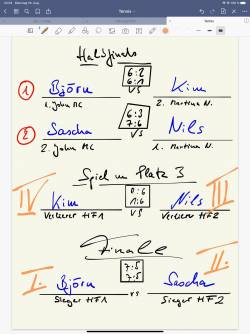 Tennis
Halbfinals
1 Björn 6:2 6:1 VS Kim
1. John MC 2. Martina N.
2 Sascha 6:3 7:6 VS Nils
2. John MC 1. Martina N.
Spiel um Platz 3
IV Kim 0:6 1:6 VS Nils III
Verlierer HF1 Verlierer HF2
Finale
I. Björn 7:5 7:5 VS Sascha II.
Sieger HF1 Sieger HF2